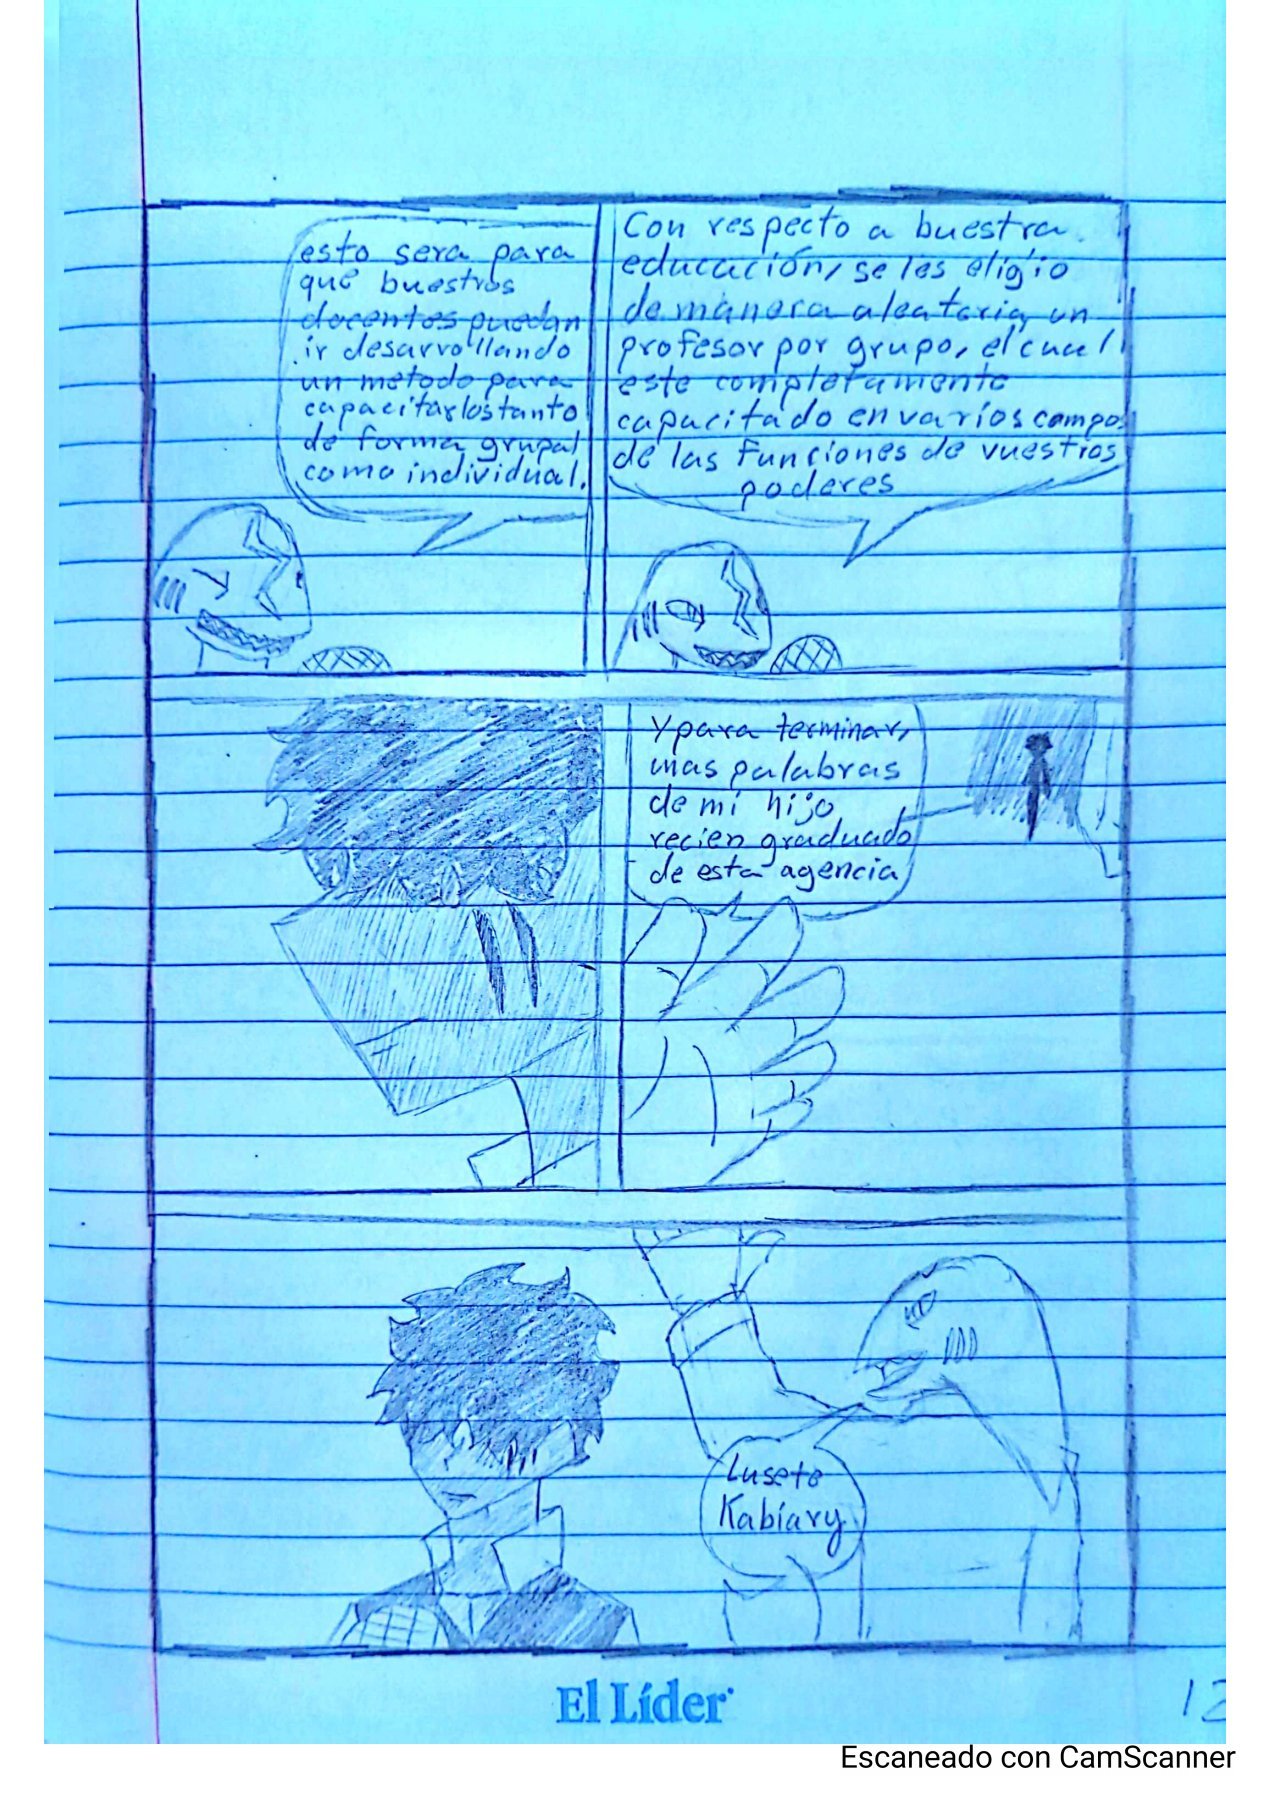 Con respecto a buestra
educación, se les eligio
de manera aleatoria, un
profesor por grupo, el cual
este completamente
capacitado en varios campos
de las funciones de vuestros
poderes
esto sera para
que buestros
docentes puedan
ir desarrollando
un metodo para
capacitarlos tanto
de forma grupal
como individual.
Y para terminar,
unas palabras
de mi hijo
recien graduado
de esta agencia
Luseto
Kabiary
El Líder
12
Escaneado con CamScanner